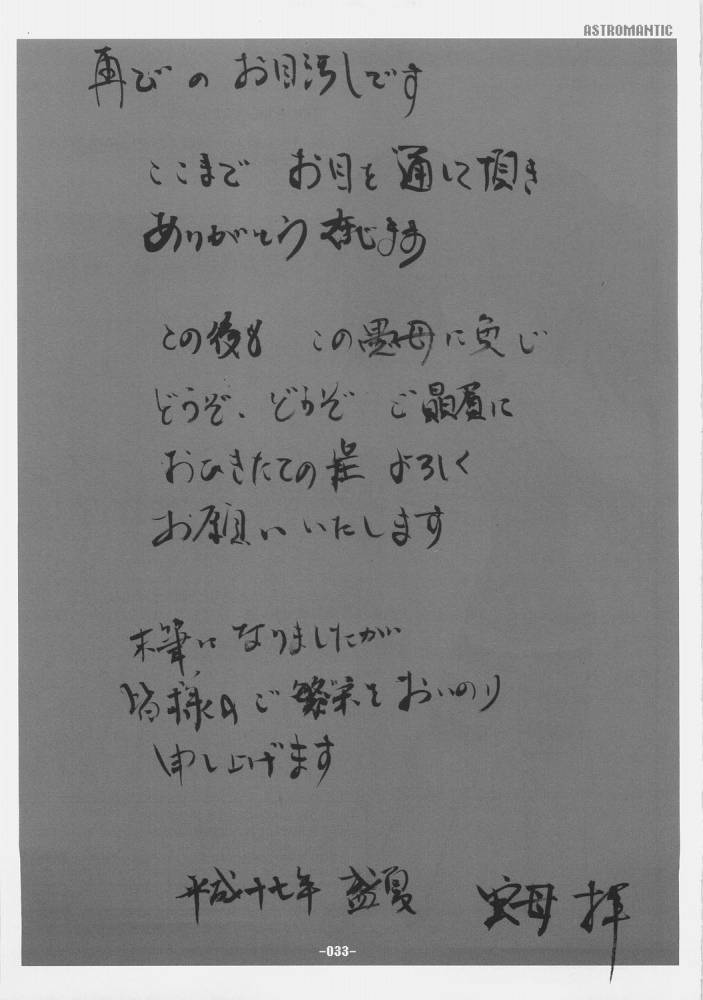 ASTROMANTIC
再びの お目汚しです
ここまで お目を通して頂き
ありがとう存じます
この後も この愚母に免じ
どうぞ、どうぞ ご贔屓に
おひきたての程 よろしく
お願いいたします
末筆になりましたが
皆様の ご繁栄を おいのり
申し上げます
平成十七年 盛夏
母 拝
-033-